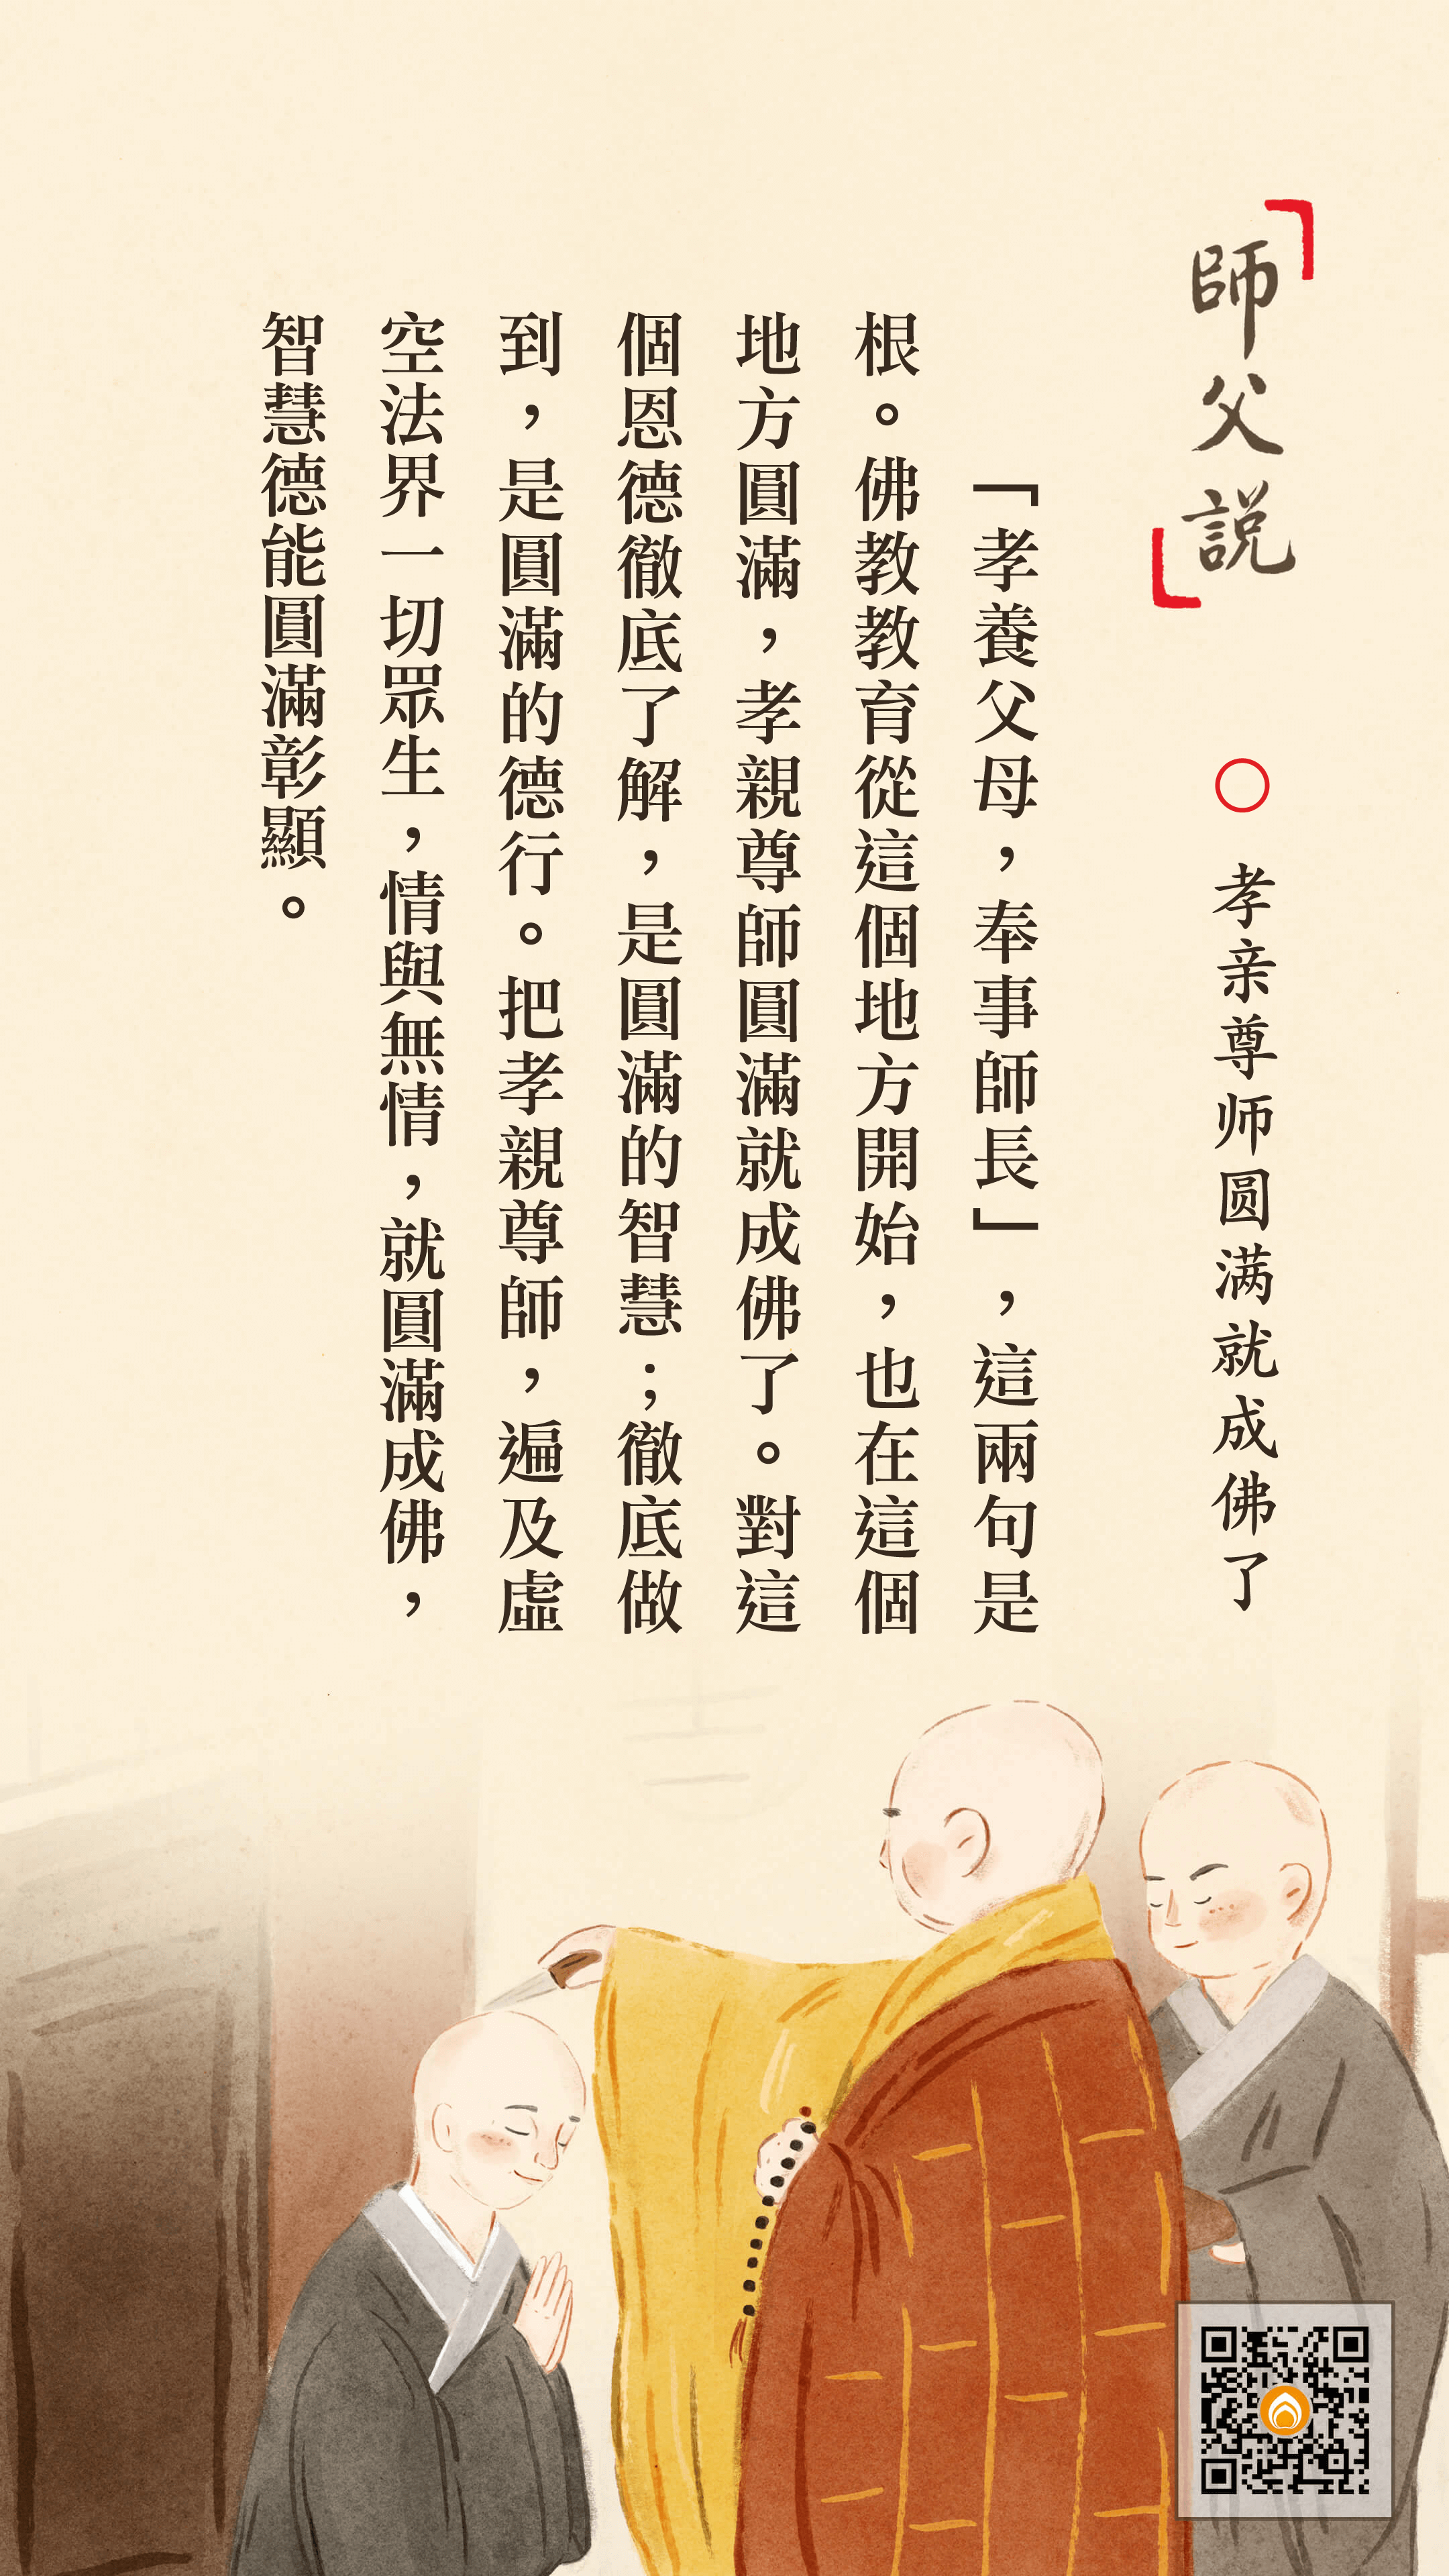 師父説
○ 孝亲尊师圆满就成佛了
「孝養父母，奉事師長」，這兩句是
根。佛教教育從這個地方開始，也在這個
地方圓滿，孝親尊師圓滿就成佛了。對這
個恩德徹底了解，是圓滿的智慧；徹底做
到，是圓滿的德行。把孝親尊師，遍及虛
空法界一切眾生，情與無情，就圓滿成佛，
智慧德能圓滿彰顯。